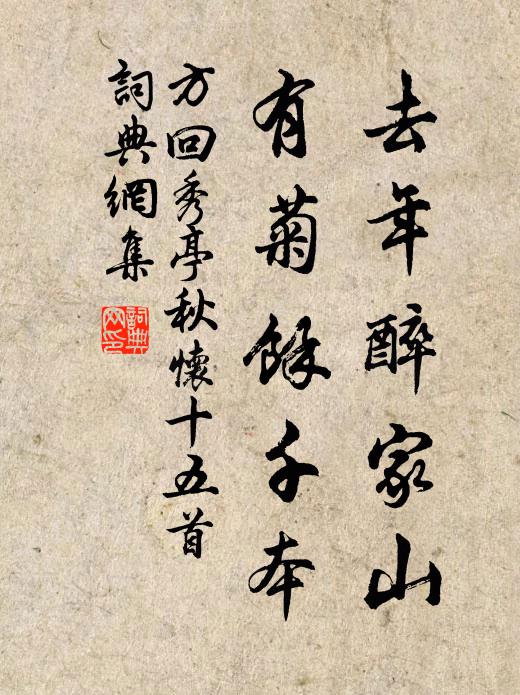 去年醉家山
有菊餘千本
方回秀亭秋懷十五首
詞典網集
詞典網印